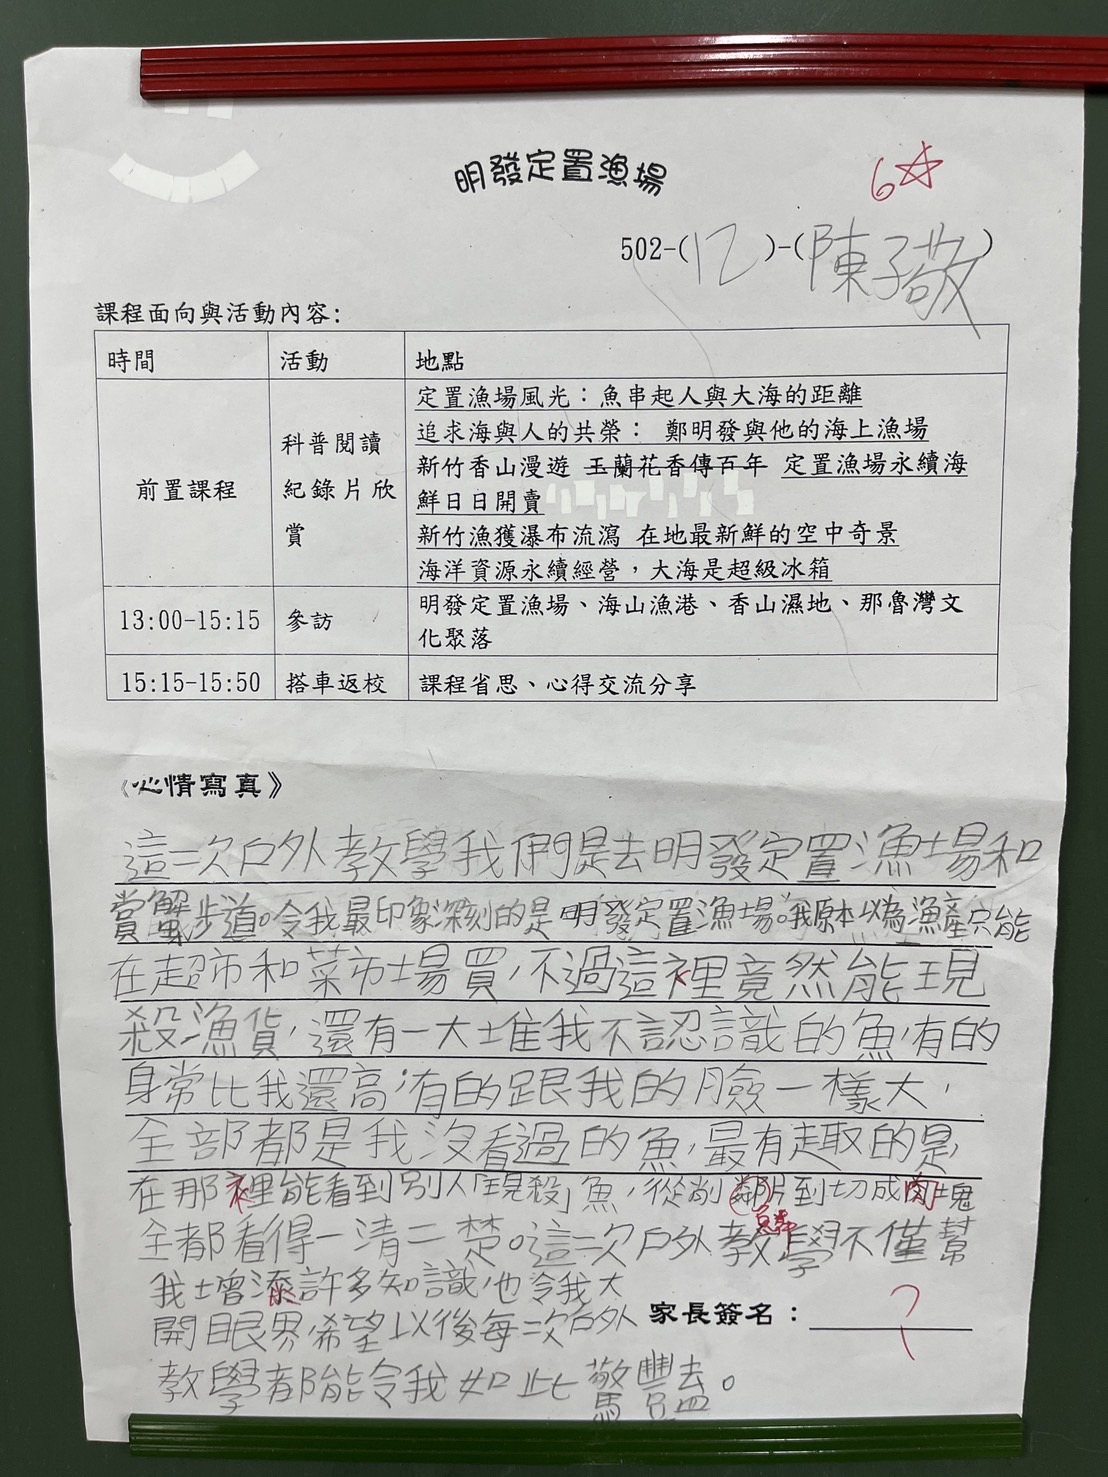 明發定置漁場
6☆
502-(12)-(陳子敬)
課程面向與活動內容:
時間 活動 地點
前置課程 科普閱讀紀錄片欣賞 定置漁場風光：魚串起人與大海的距離
追求海與人的共榮： 鄭明發與他的海上漁場
新竹香山漫遊 玉蘭花香傳百年 定置漁場永續海
鮮日日開賣
新竹漁獲瀑布流瀉 在地最新鮮的空中奇景
海洋資源永續經營，大海是超級冰箱
13:00-15:15 參訪 明發定置漁場、海山漁港、香山濕地、那魯灣文
化聚落
15:15-15:50 搭車返校 課程省思、心得交流分享
《心情寫真》
這次戶外教學我們是去明發定置漁場和
賞蟹步道。令我最印象深刻的是明發定置漁場。我原本以為漁產只能
在超市和菜市場買，不過這裡竟然能現
殺漁貨，還有一大堆我不認識的魚，有的
身常比我還高，有的跟我的臉一樣大，
全部都是我沒看過的魚，最有趣的是，
在那裡能看到別人「現殺」魚，從削鄰片到切成肉塊
鱗
全都看得一清二楚。這次戶外教學不僅幫
我增添許多知識，也令我大
開眼界，希望以後每次戶外
教學都能令我如此驚豔。
家長簽名：
？